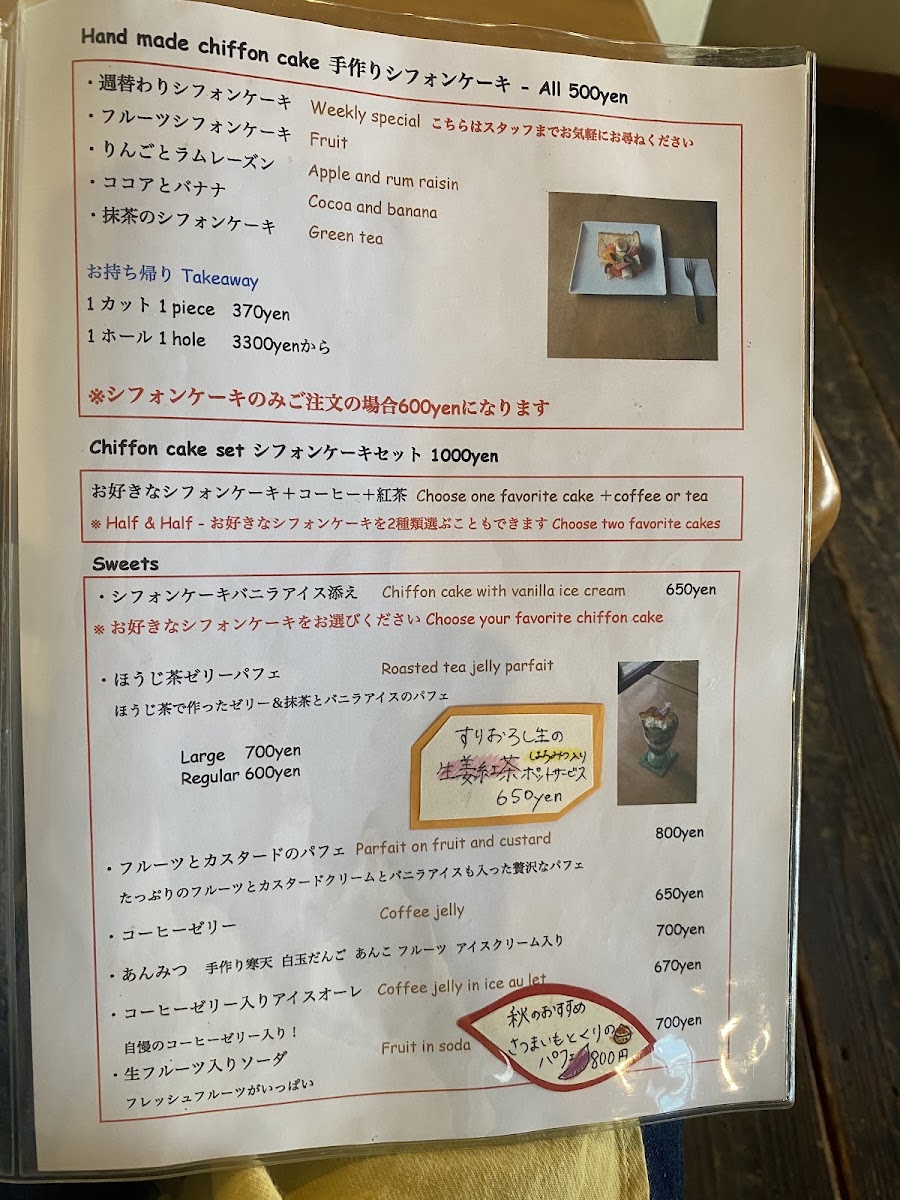 Hand made chiffon cake 手作りシフォンケーキ - All 500yen
・週替わりシフォンケーキ Weekly special こちらはスタッフまでお気軽にお尋ねください
・フルーツシフォンケーキ Fruit
・りんごとラムレーズン Apple and rum raisin
・ココアとバナナ Cocoa and banana
・抹茶のシフォンケーキ Green tea
お持ち帰り Takeaway
1 カット 1 piece 370yen
1 ホール 1 hole 3300yenから
※シフォンケーキのみご注文の場合600yenになります
Chiffon cake set シフォンケーキセット 1000yen
お好きなシフォンケーキ＋コーヒー＋紅茶 Choose one favorite cake ＋coffee or tea
※ Half & Half - お好きなシフォンケーキを2種類選ぶこともできます Choose two favorite cakes
Sweets
・シフォンケーキバニラアイス添え Chiffon cake with vanilla ice cream 650yen
※ お好きなシフォンケーキをお選びください Choose your favorite chiffon cake
・ほうじ茶ゼリーパフェ Roasted tea jelly parfait
ほうじ茶で作ったゼリー＆抹茶とバニラアイスのパフェ
Large 700yen
Regular 600yen
すりおろし生の
はちみつ入り
生姜紅茶 ポットサービス
650yen
・フルーツとカスタードのパフェ Parfait on fruit and custard 800yen
たっぷりのフルーツとカスタードクリームとバニラアイスも入った贅沢なパフェ
・コーヒーゼリー Coffee jelly 650yen
・あんみつ 手作り寒天 白玉だんご あんこ フルーツ アイスクリーム入り 700yen
・コーヒーゼリー入りアイスオーレ Coffee jelly in ice au let 670yen
自慢のコーヒーゼリー入り！
・生フルーツ入りソーダ Fruit in soda 700yen
フレッシュフルーツがいっぱい
秋のおすすめ
さつまいもとくりの
パフェ 800円